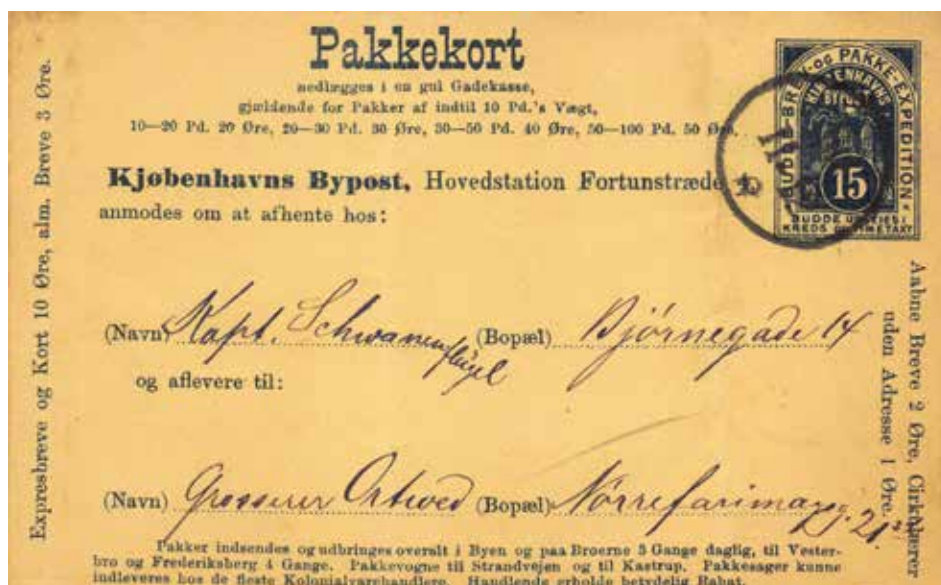 Pakkekort
nedlægges i en gul Gadekasse,
gjældende for Pakker af indtil 10 Pd.'s Vægt,
10—20 Pd. 20 Øre, 20—30 Pd. 30 Øre, 30—50 Pd. 40 Øre, 50—100 Pd. 50 Øre.
BUDDE-BREV-OG PAKKE-EXPEDITION
KJØBENHAVNS
BYPOST
15
BUDDE UDLEIES I
KREDS OG TIMETAXT
Kjøbenhavns Bypost, Hovedstation Fortunstræde 4,
anmodes om at afhente hos:
(Navn) Kapt. Schwanenflügel (Bopæl) Bjørnegade 14
og aflevere til:
(Navn) Grosserer Ortved (Bopæl) Nørrefarimagsg. 21
Pakker indsendes og udbringes overalt i Byen og paa Broerne 3 Gange daglig, til Vester-
bro og Frederiksberg 4 Gange. Pakkevogne til Strandvejen og til Kastrup. Pakkesager kunne
indleveres hos de fleste Kolonialvarehandlere. Handlende erholde betydelig Rabat.
Expresbreve og Kort 10 Øre, alm. Breve 3 Øre.
Aabne Breve 2 Øre, Cirkulærer
uden Adresse 1 Øre.